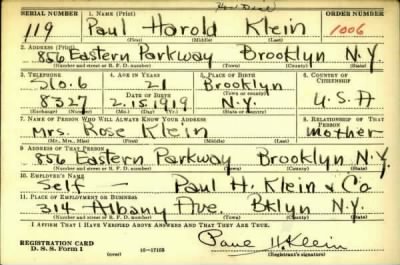 SERIAL NUMBER 1. NAME (Print) ORDER NUMBER
119 Paul Harold Klein 1006
(First) (Middle) (Last)
2. ADDRESS (Print)
856 Eastern Parkway Brooklyn N.Y.
(Number and street or R. F. D. number) (Town) (County) (State)
3. TELEPHONE 4. AGE IN YEARS 5. PLACE OF BIRTH 6. COUNTRY OF CITIZENSHIP
Slo.6 21 Brooklyn
(Town or county)
8327 DATE OF BIRTH 2.15.1919 N.Y. U.S.A
(Exchange) (Number) (Mo.) (Day) (Yr.) (State or country)
7. NAME OF PERSON WHO WILL ALWAYS KNOW YOUR ADDRESS 8. RELATIONSHIP OF THAT PERSON
Mrs. Rose Klein mother
(Mr., Mrs., Miss) (First) (Middle) (Last)
9. ADDRESS OF THAT PERSON
856 Eastern Parkway Brooklyn N.Y.
(Number and street or R. F. D. number) (Town) (County) (State)
10. EMPLOYER'S NAME
Self — Paul H. Klein & Co
11. PLACE OF EMPLOYMENT OR BUSINESS
314 Albany Ave. Bklyn N.Y.
(Number and street or R. F. D. number) (Town) (County) (State)
I AFFIRM THAT I HAVE VERIFIED ABOVE ANSWERS AND THAT THEY ARE TRUE.
REGISTRATION CARD
D. S. S. Form 1 (over) 16—17105 Paul H. Klein
(Registrant's signature)